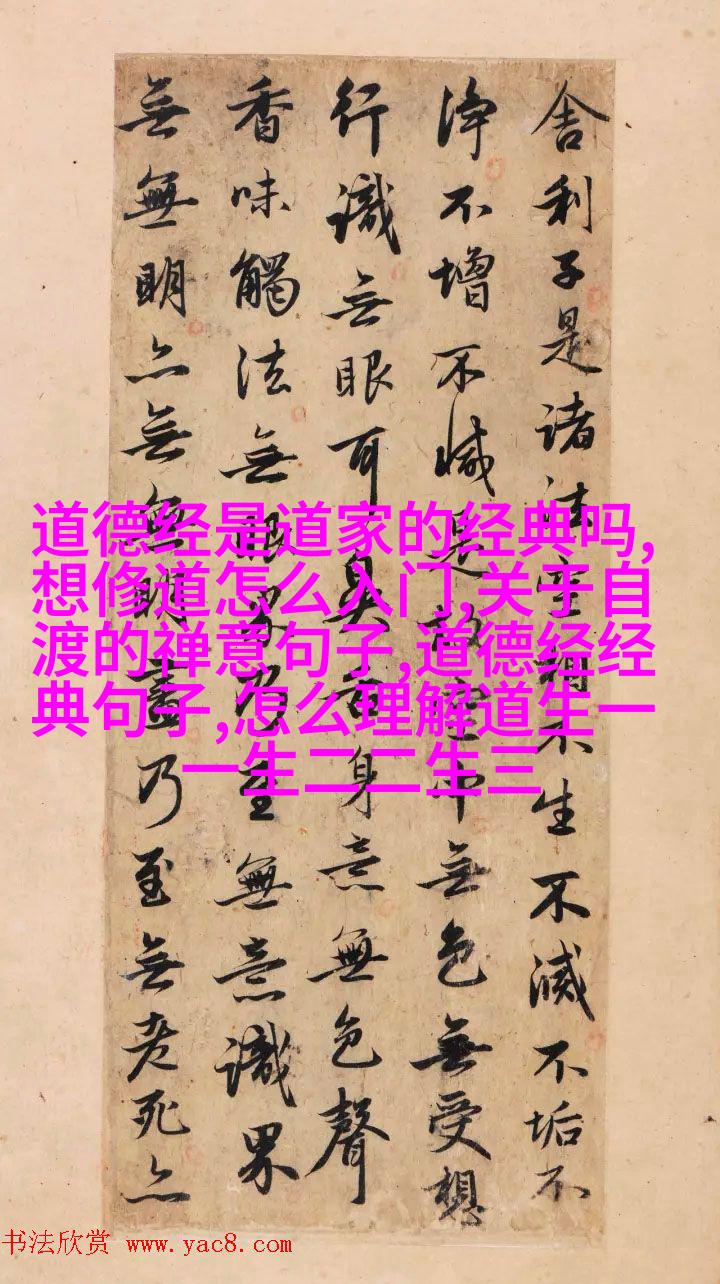 舍利子是諸法空相不生不滅不垢不
淨不增不減是故空中無色無受想
行識無眼耳鼻舌身意無色聲
香味觸法無眼界乃至無意識界
無無明亦無無明盡乃至無老死亦
道德经是道家的经典吗,
想修道怎么入门,关于自
渡的禅意句子,道德经经
典句子,怎么理解道生一
一生二二生三
书法欣赏 www.yac8.com